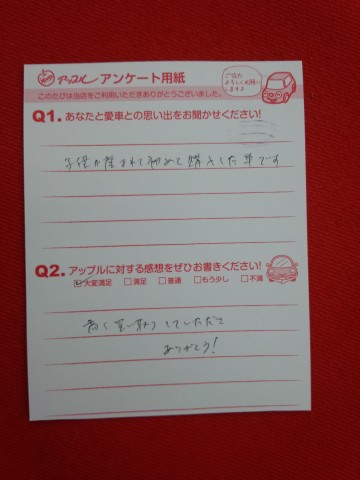 アップル アンケート用紙
このたびは当店をご利用いただきありがとうございました。
ご協力
よろしくお願い
します♪
Q1. あなたと愛車との思い出をお聞かせください!
子供が産まれて初めて購入した車です
Q2. アップルに対する感想をぜひお書きください!
☑大変満足 □満足 □普通 □もう少し □不満
高く買取りしていただき
ありがとう!